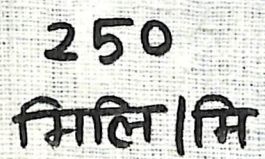 250
मिलि|मि